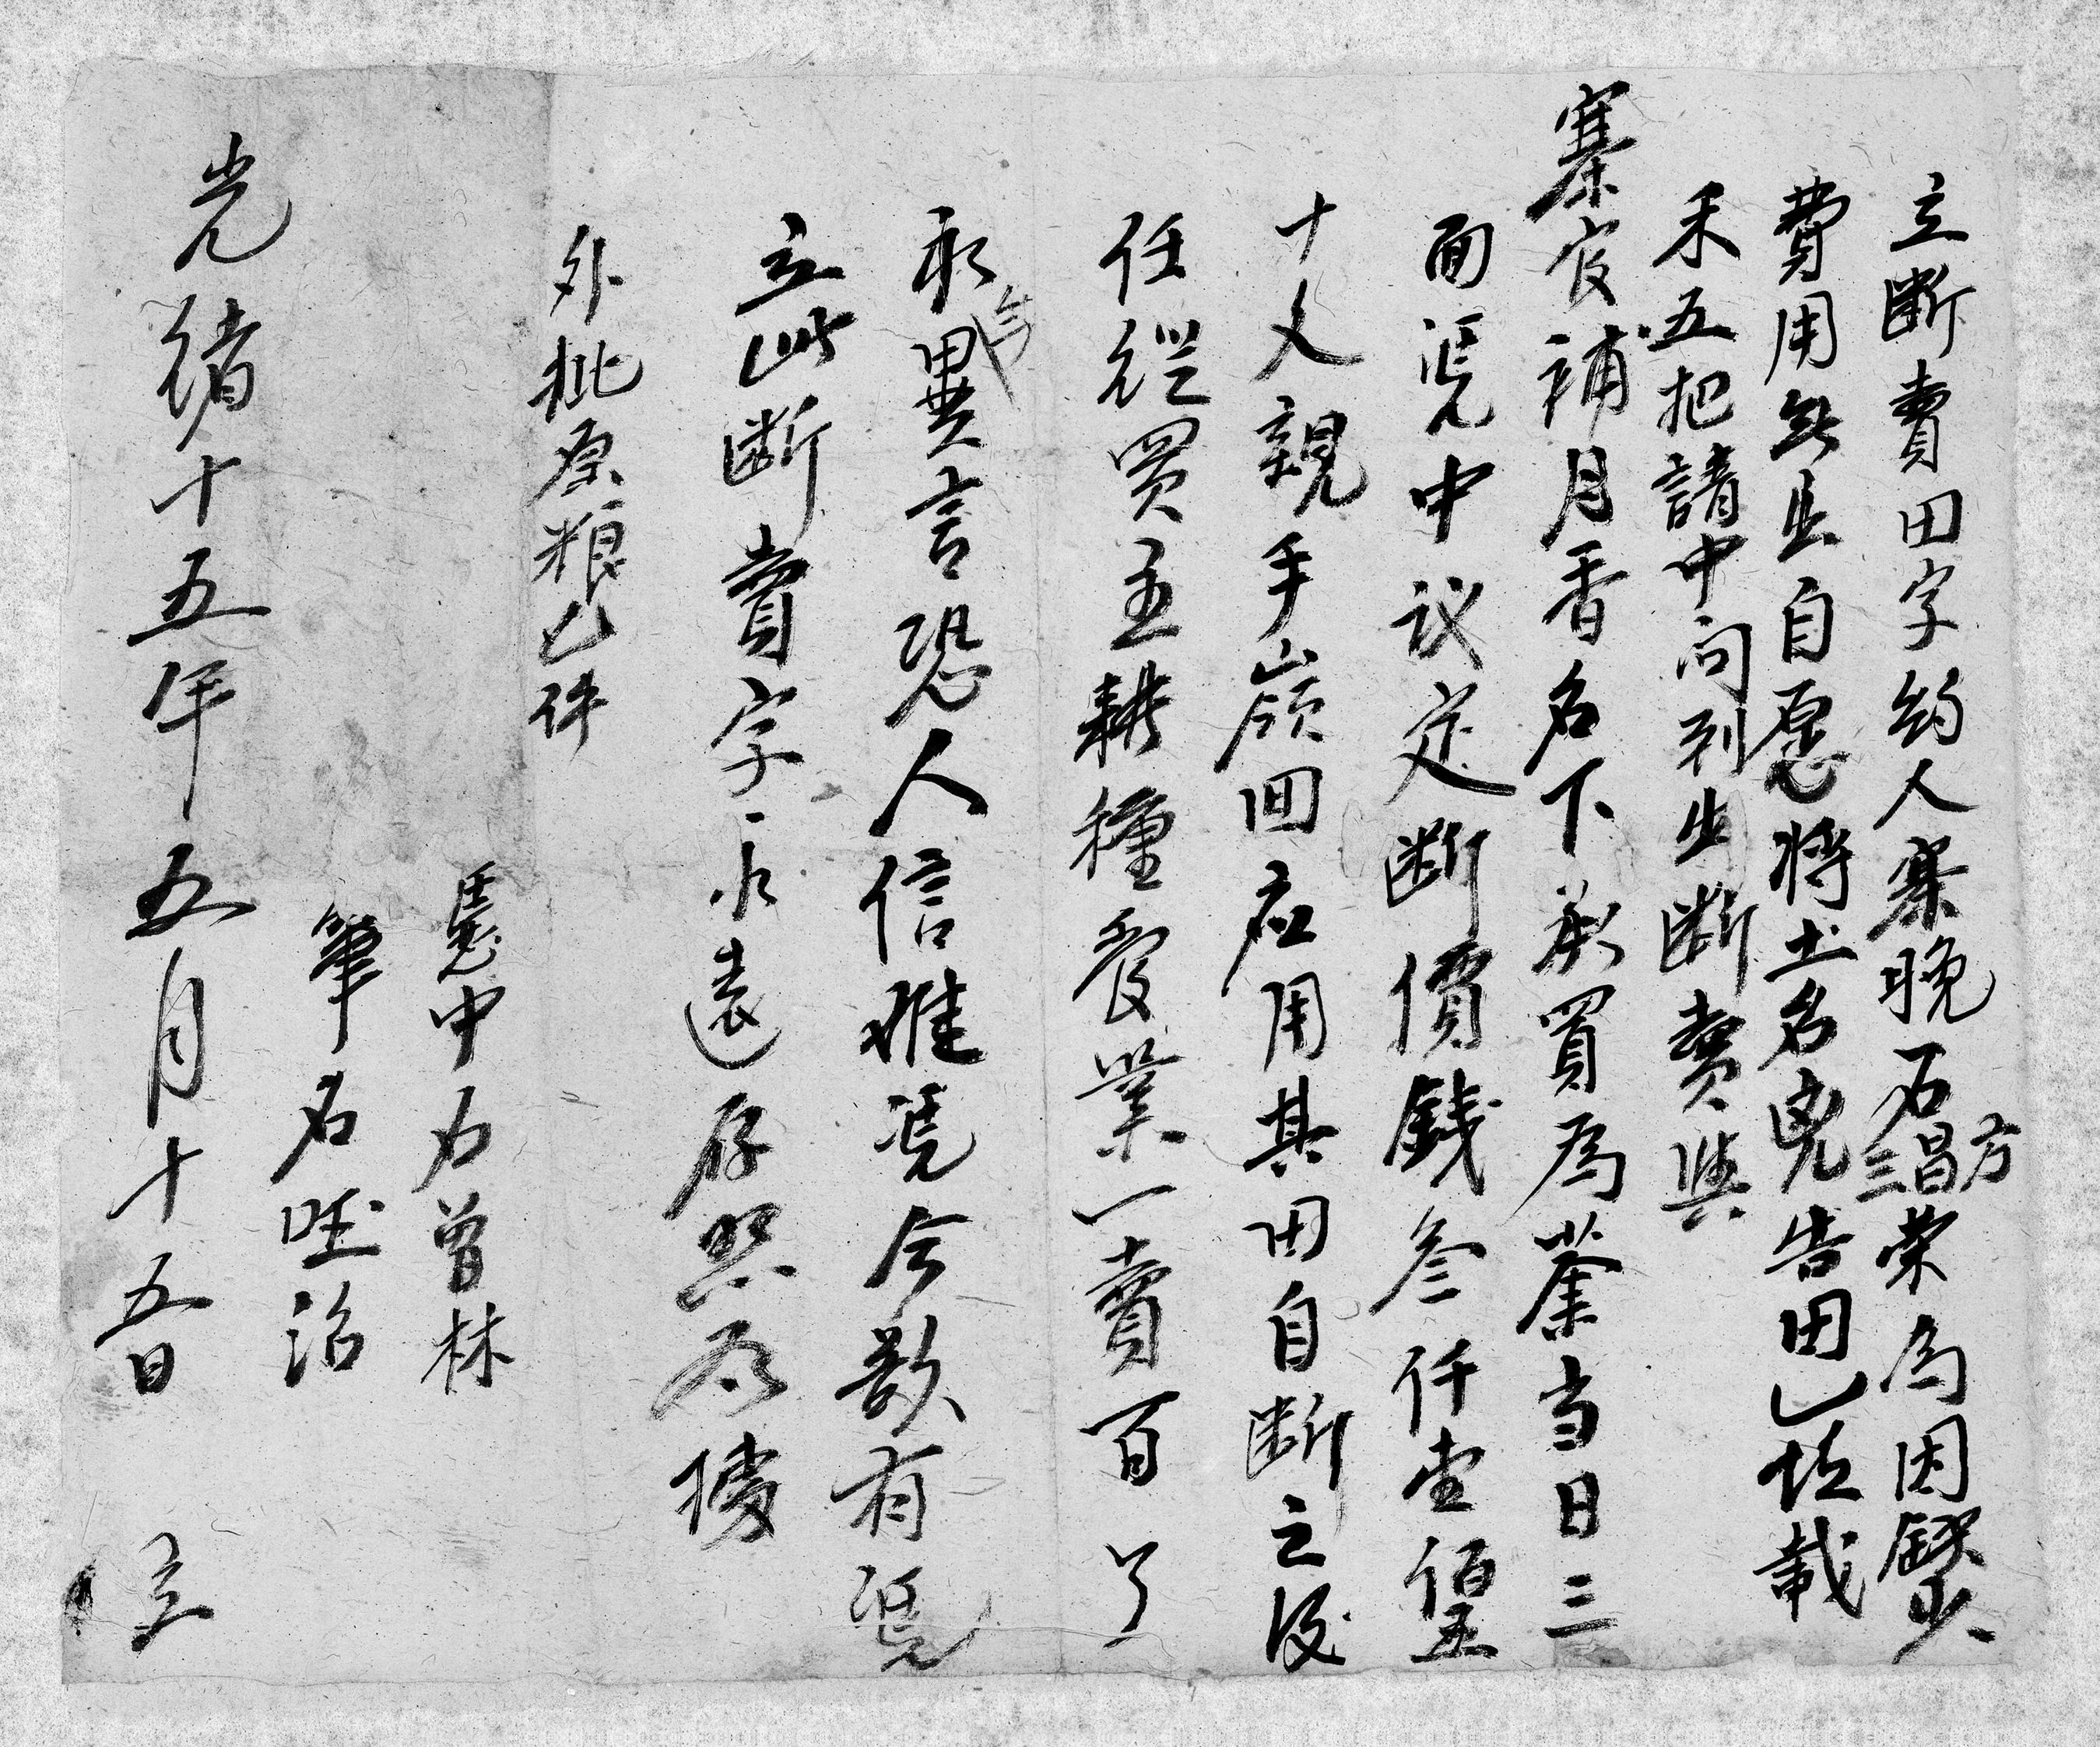 立断賣田字約人寨晚石昌三荣為因缺少
方
費用無出自愿將土名兇告田乚坵載
禾五把請中問到出断賣與
寨官補月香名下承買為業当日三
面凴中议定断價錢叁仟壹伯五
十文親手嶺回应用其田自断之後
任從買主耕種受業一賣百了
永無異言恐人信难凴今欲有凴
立此断賣字一永遠存照為據
外批原粮乚件
凴中石曾林
筆石旺治
光绪十五年五月十五日 立